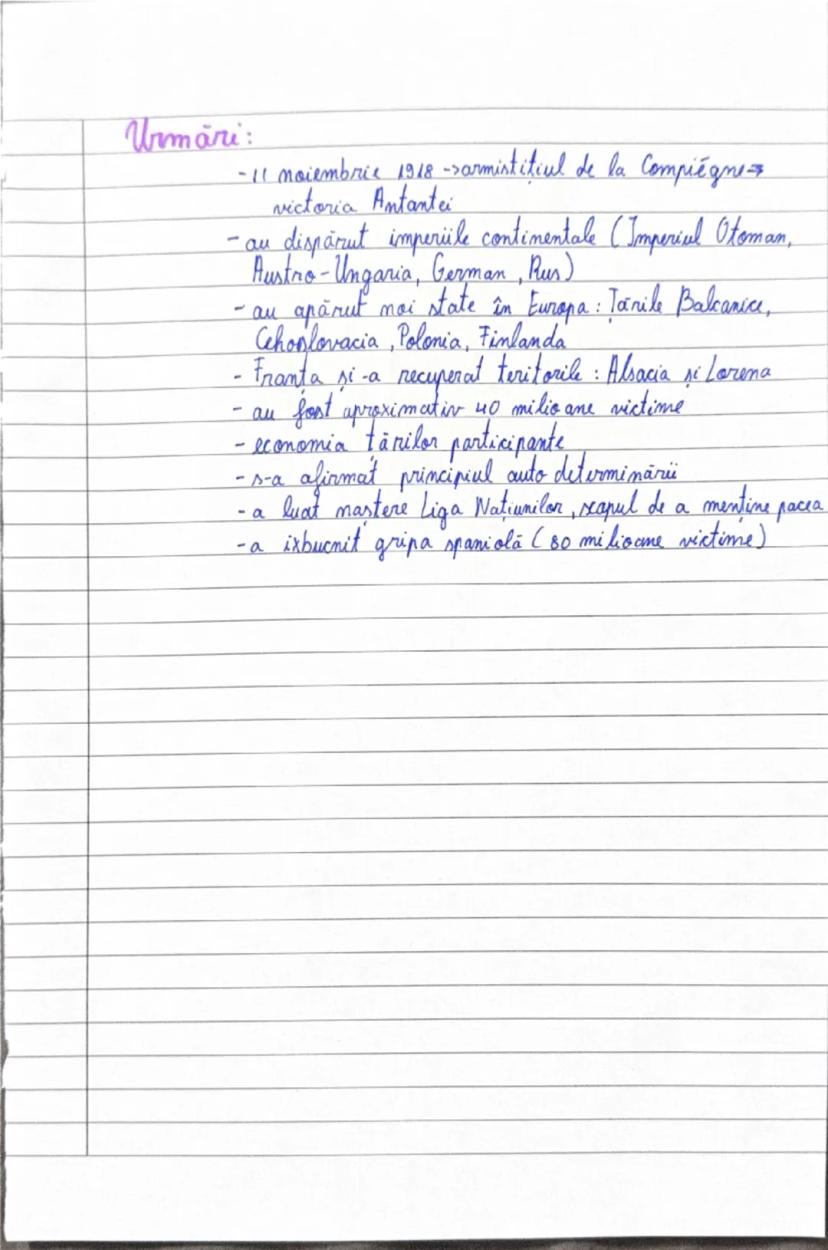 Urmări:
- 11 noiembrie 1918 -> armistițiul de la Compiégne =>
victoria Antantei
- au dispărut imperiile continentale (Imperiul Otoman,
Austro-Ungaria, German, Rus)
- au apărut noi state în Europa: Țările Balcanice,
Cehoslovacia, Polonia, Finlanda
- Franța și-a recuperat teritorile: Alsacia și Lorena
- au fost aproximativ 40 milioane victime
- economia țărilor participante
- s-a afirmat principiul auto determinării
- a luat naștere Liga Națiunilor, scopul de a menține pacea
- a ixbucnit gripa spaniolă (80 milioane victime)